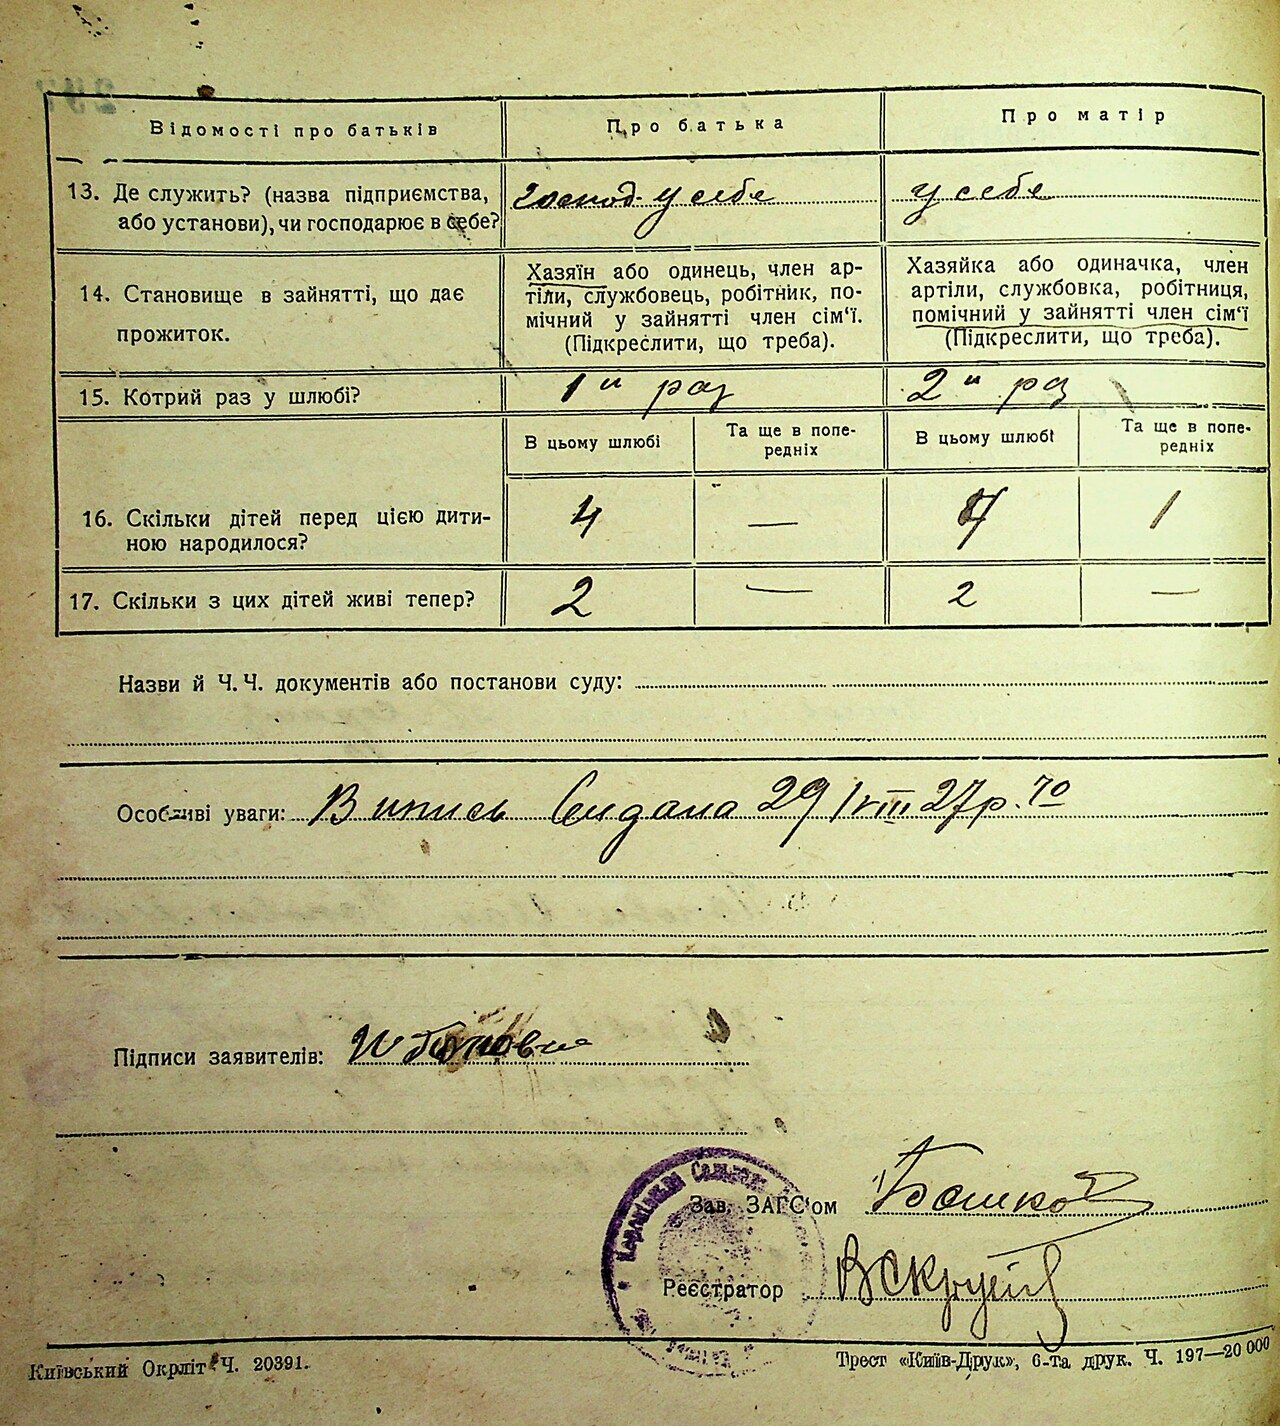 Відомості про батьків
Про батька
Про матір
13. Де служить? (назва підприємства,
або установи), чи господарює в себе?
господ. у себе
у себе
14. Становище в зайнятті, що дає
прожиток.
Хазяїн або одинець, член ар-
тіли, службовець, робітник, по-
мічний у зайнятті член сім'ї.
(Підкреслити, що треба).
Хазяйка або одиначка, член
артіли, службовка, робітниця,
помічний у зайнятті член сім'ї
(Підкреслити, що треба).
15. Котрий раз у шлюбі?
1 и раз
2 и раз
В цьому шлюбі
Та ще в попе-
редніх
В цьому шлюбі
Та ще в попе-
редніх
16. Скільки дітей перед цією дити-
ною народилося?
4
—
4
1
17. Скільки з цих дітей живі тепер?
2
—
2
—
Назви й Ч. Ч. документів або постанови суду:
Особливі уваги: Випись 29/VIII 27 р.
Підписи заявителів:
Зав. ЗАГС'ом
Реєстратор
Київський Окрліт Ч. 20391.
Трест «Київ-Друк», 6-та друк. Ч. 197—20 000